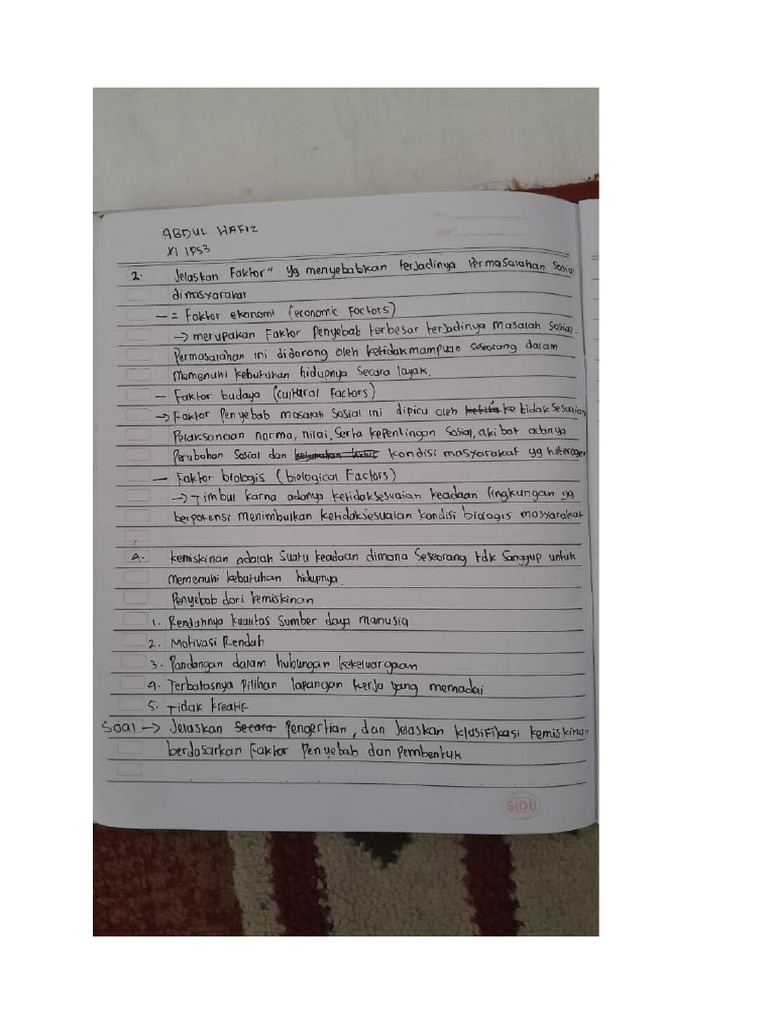 ABDUL HAFIZ
XI IPS3
2. Jelaskan Faktor" yg menyebabkan terjadinya Permasalahan Sosial
dimasyarakat
- = Faktor ekonomi (economic Factors)
-> merupakan Faktor Penyebab terbesar terjadinya masalah Sosial.
Permasalahan ini didorong oleh ketidakmampuan seseorang dalam
memenuhi kebutuhan hidupnya Secara layak.
- Faktor budaya (cultural Factors)
-> Faktor Penyebab masalah Sosial ini dipicu oleh ketidak sesuaian
Pelaksanaan norma, nilai, Serta kepentingan Sosial, akibat adanya
Perubahan Sosial dan kondisi masyarakat yg heterogen
- Faktor biologis (biological Factors)
-> Timbul karna adanya ketidaksesuaian keadaan lingkungan yg
berpotensi menimbulkan ketidaksesuaian kondisi biologis masyarakat
4. kemiskinan adalah Suatu keadaan dimana Seseorang tdk Sanggup untuk
memenuhi kebutuhan hidupnya.
Penyebab dari kemiskinan
1. Rendahnya kualitas Sumber daya manusia
2. Motivasi Rendah
3. Pandangan dalam hubungan kekeluargaan
4. Terbatasnya Pilihan lapangan kerja yang memadai
5. Tidak kreatif
Soal -> Jelaskan Secara Pengertian, dan Jelaskan klasifikasi kemiskinan
berdasarkan Faktor Penyebab dan Pembentuk
SIDU